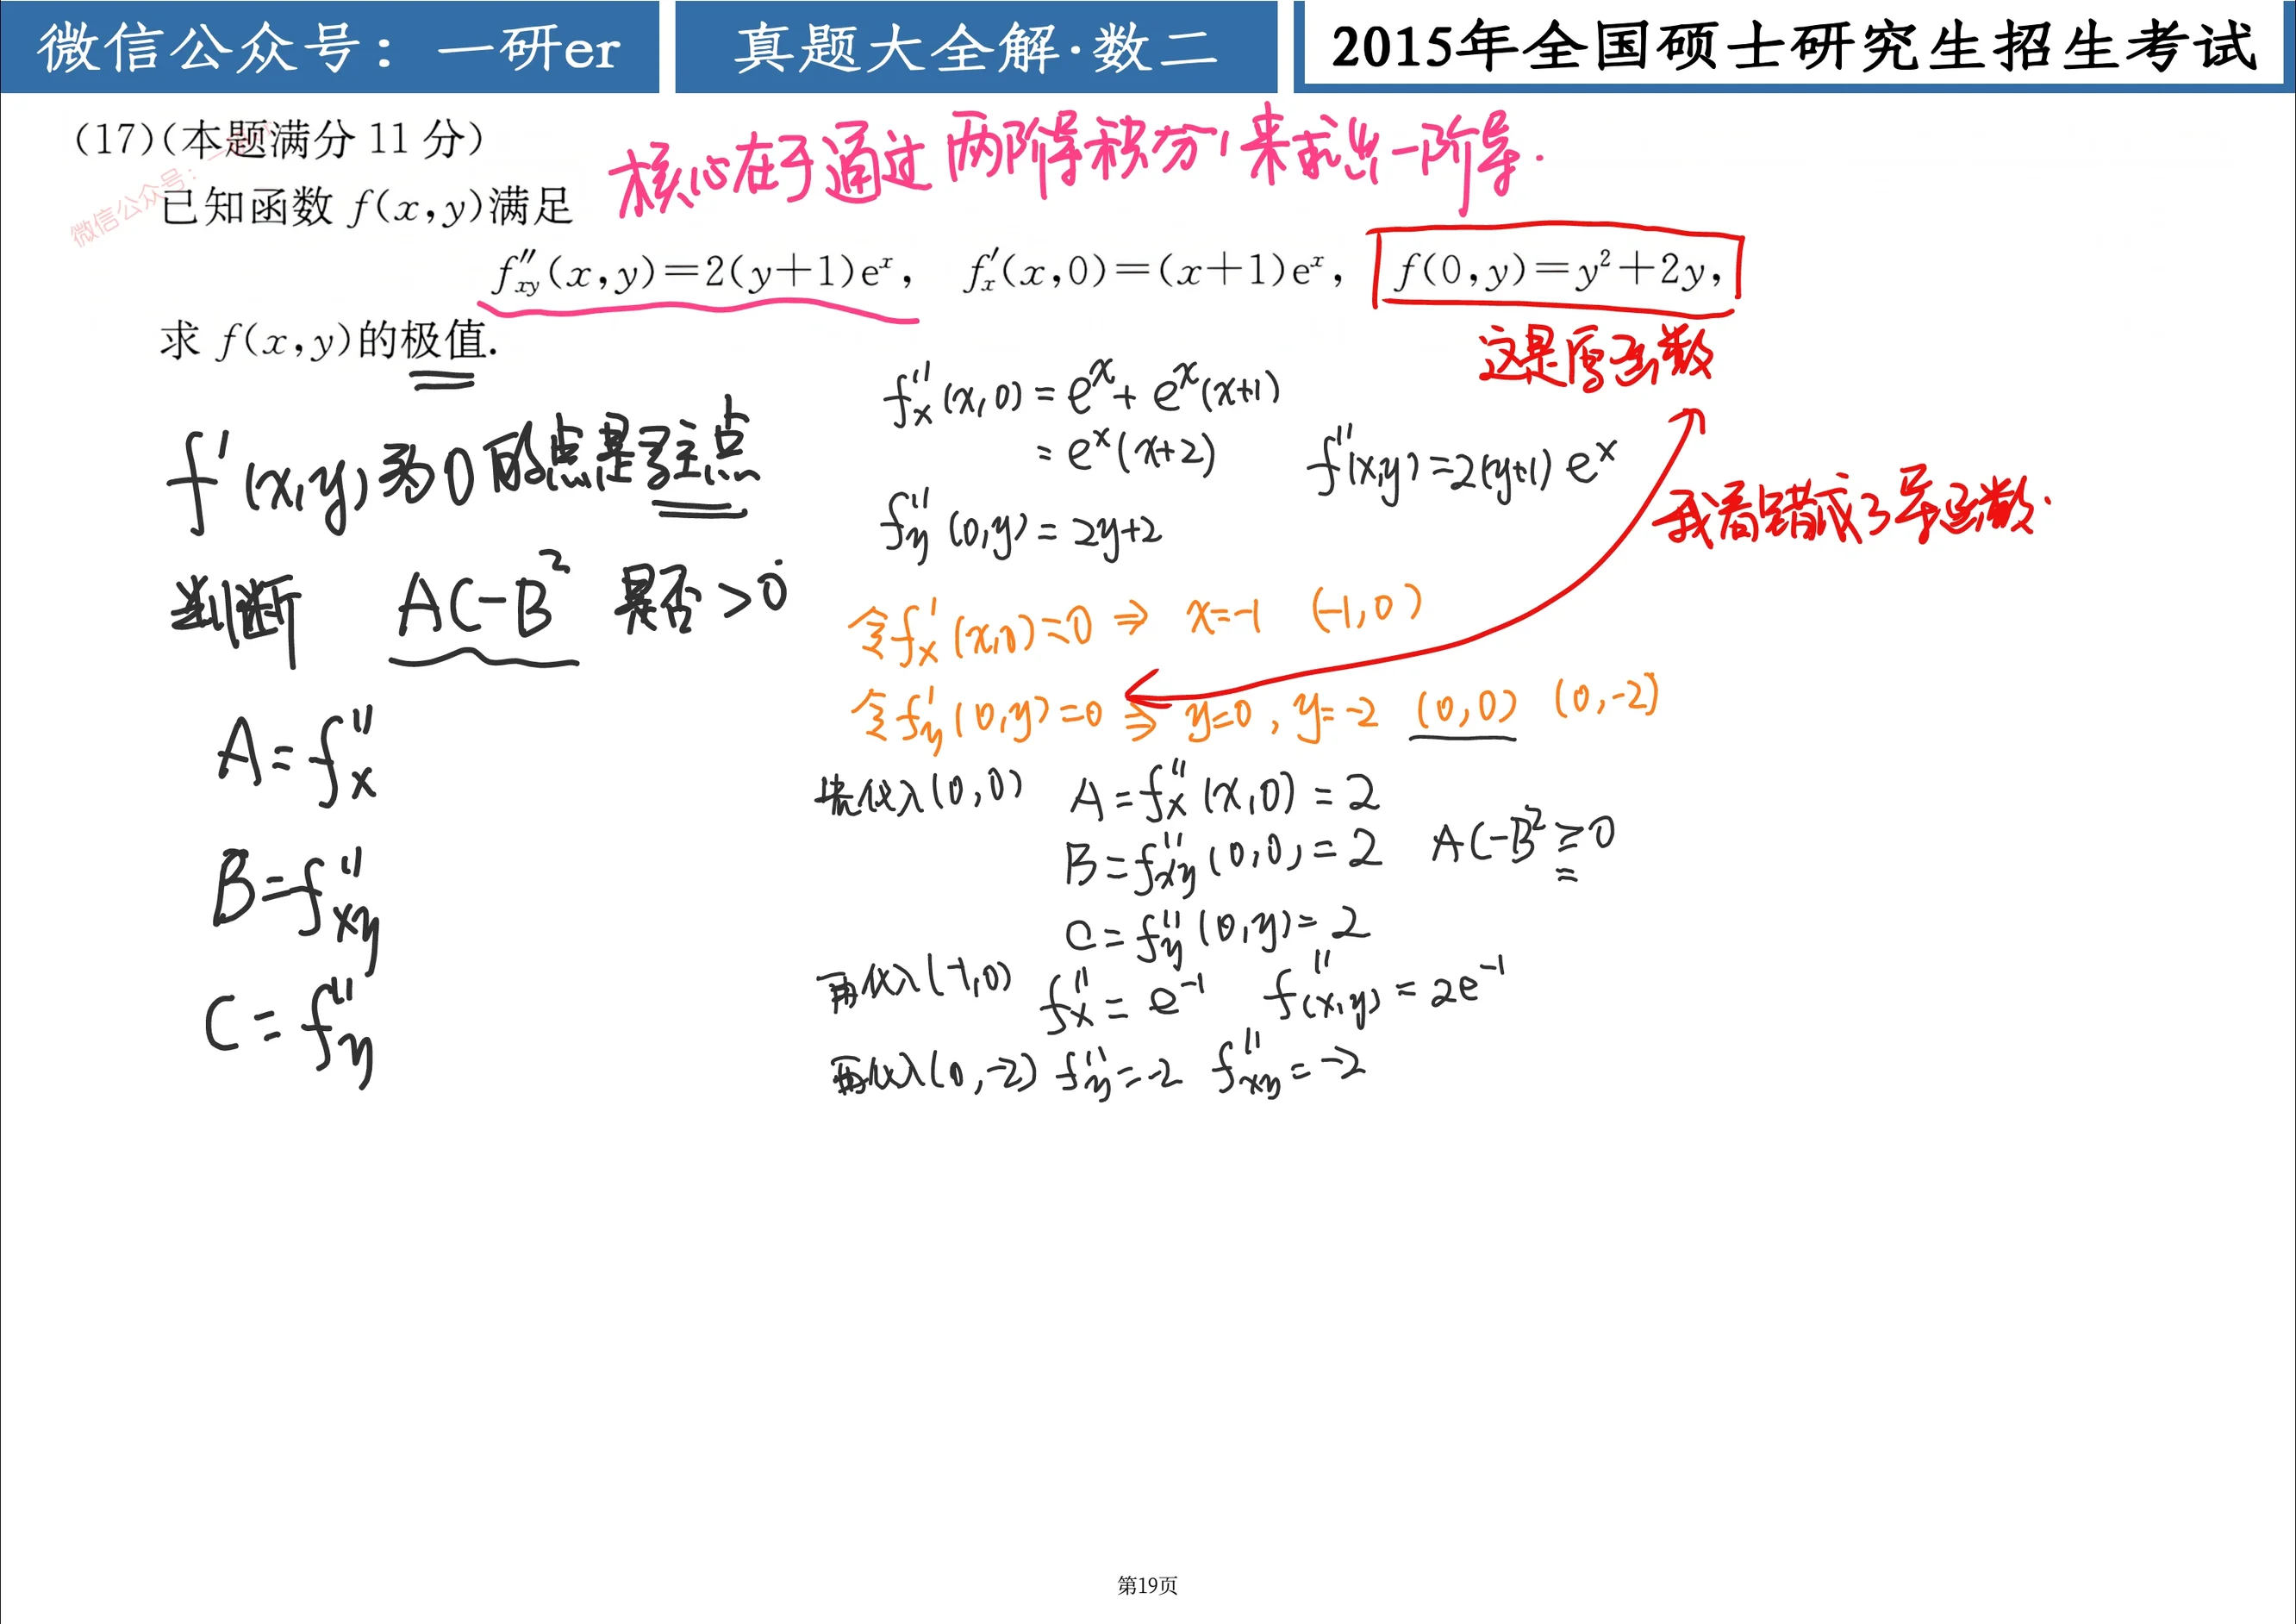 微信公众号：一研er
真题大全解·数二
2015年全国硕士研究生招生考试
(17)(本题满分 11 分)
核心在于通过两阶导积分,来求出一阶导.
微信公众号：
已知函数 f(x,y)满足
f″xy(x,y)=2(y+1)eˣ, f′x(x,0)=(x+1)eˣ, f(0,y)=y²+2y,
这是原函数
求 f(x,y)的极值.
f′(x,y)为0的点是驻点
判断 AC-B² 是否>0
A=f″x
B=f″xy
C=f″y
f″x(x,0)=eˣ+eˣ(x+1)
=eˣ(x+2)
f″(x,y)=2(y+1)eˣ
我看错成了导函数.
f″y(0,y)=2y+2
令f′x(x,0)=0⇒ x=-1 (-1,0)
令f′y(0,y)=0⇒ y=0,y=-2 (0,0) (0,-2)
先代入(0,0) A=f″x(x,0)=2
B=f″xy(0,0)=2 AC-B²≥0
C=f″y(0,y)=2
再代入(-1,0) f″x=e⁻¹ f″(x,y)=2e⁻¹
再代入(0,-2) f″y=-2 f″xy=-2
第19页